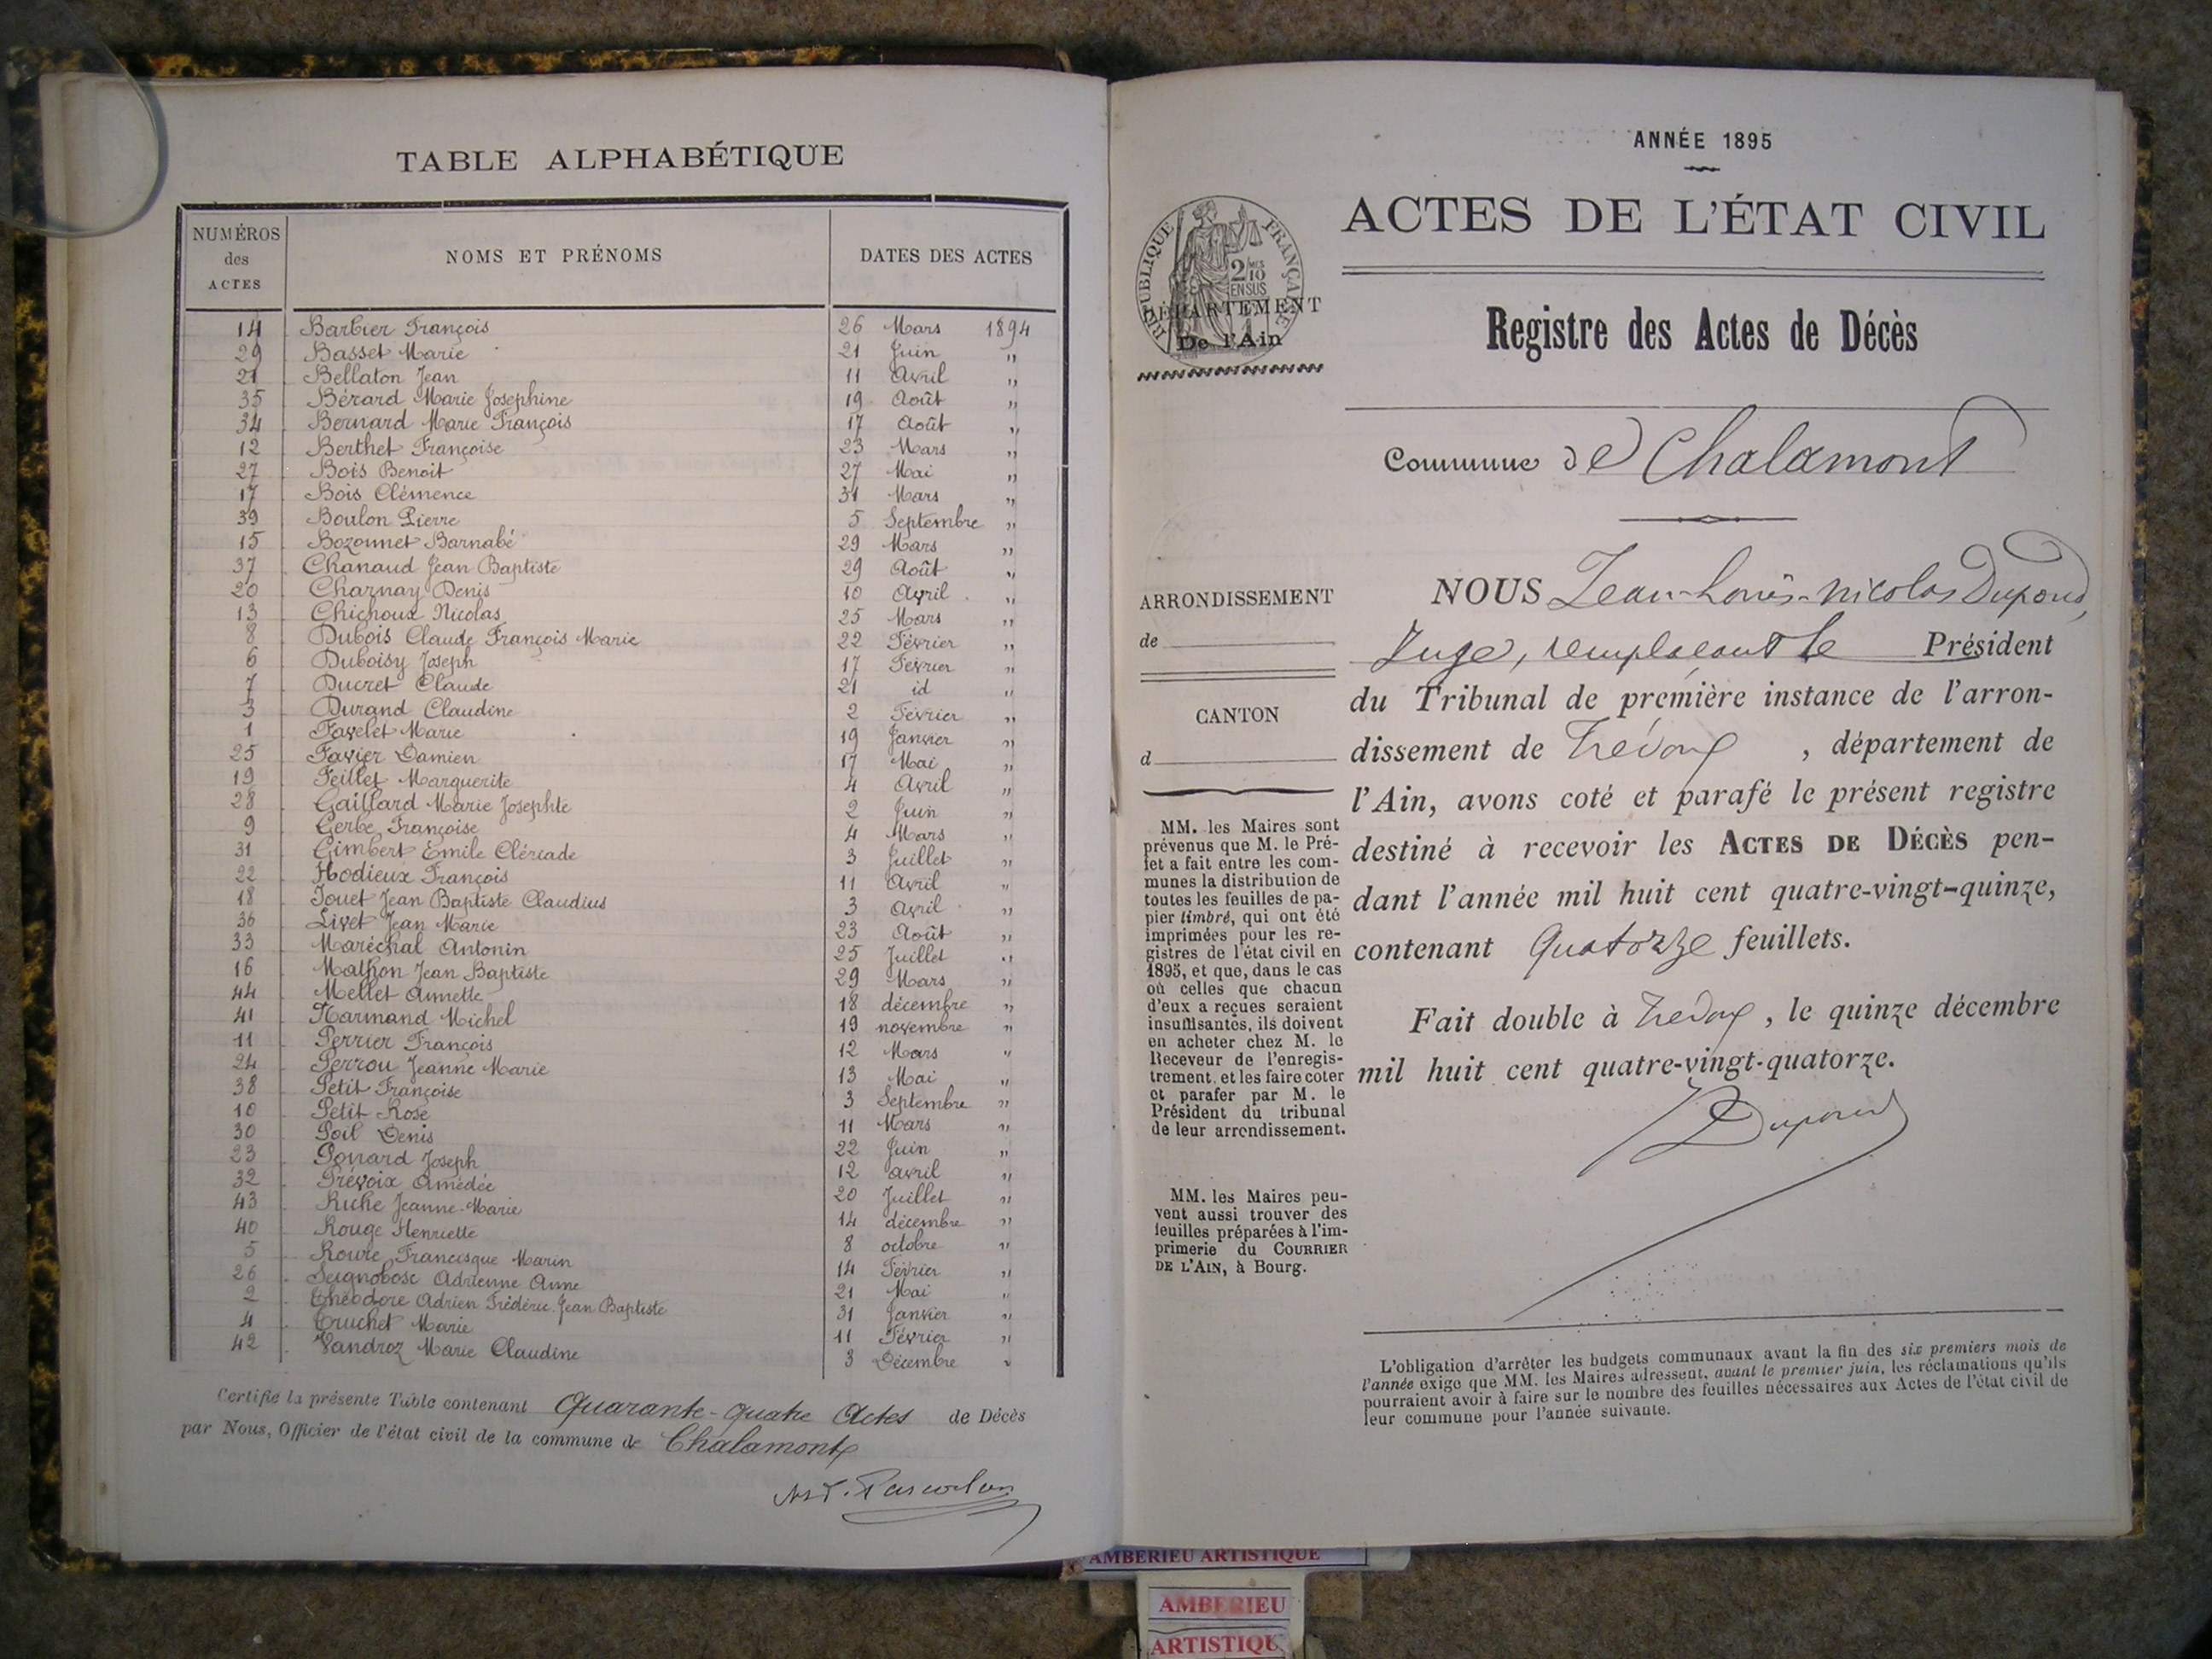 TABLE ALPHABÉTIQUE
NUMÉROS des ACTES NOMS ET PRÉNOMS DATES DES ACTES
14 Barbier François 26 Mars 1894
29 Basset Marie 21 Juin "
21 Bellaton Jean 11 Avril "
35 Bérard Marie Josephine 19 Août "
34 Bernard Marie François 17 Août "
12 Berthet Françoise 23 Mars "
27 Bois Benoit 27 Mai "
17 Bois Clémence 31 Mars "
39 Boulon Pierre 5 Septembre "
15 Bozonnet Barnabé 29 Mars "
37 Chanaud Jean Baptiste 29 Août "
20 Charnay Denis 10 Avril "
13 Chichoux Nicolas 25 Mars "
8 Dubois Claude François Marie 22 Février "
6 Duboisy Joseph 17 Février "
7 Ducret Claude 21 id "
3 Durand Claudine 2 Février "
1 Favelet Marie 19 Janvier "
25 Favier Damien 17 Mai "
19 Feillet Marguerite 4 Avril "
28 Gaillard Marie Josephte 2 Juin "
9 Gerbe Françoise 4 Mars "
31 Gimbert Emile Clériade 3 Juillet "
22 Hodieux François 11 Avril "
18 Jouet Jean Baptiste Claudius 3 Avril "
36 Livet Jean Marie 23 Août "
33 Maréchal Antonin 25 Juillet "
16 Mathon Jean Baptiste 29 Mars "
44 Mellet Annette 18 décembre "
41 Narmand Michel 19 novembre "
11 Perrier François 12 Mars "
24 Perrou Jeanne Marie 13 Mai "
38 Petit Françoise 3 Septembre "
10 Petit Rose 11 Mars "
30 Poil Denis 22 Juin "
23 Ponard Joseph 12 avril "
32 Prévoix Amédée 20 Juillet "
43 Riche Jeanne-Marie 14 décembre "
40 Rouge Henriette 8 octobre "
5 Roure Francisque Marin 14 Février "
26 Seignobosc Adrienne Anne 21 Mai "
2 Théodore Adrien Frédéric Jean Baptiste 31 Janvier "
4 Truchet Marie 11 Février "
42 Vandroz Marie Claudine 3 Décembre "
Certifié la présente Table contenant Quarante-quatre Actes de Décès
par Nous, Officier de l'état civil de la commune de Chalamont
ANNÉE 1895
ACTES DE L'ÉTAT CIVIL
RÉPUBLIQUE FRANÇAISE
2/10 MES
EN SUS
DÉPARTEMENT
De l'Ain
Registre des Actes de Décès
Commune de Chalamont
ARRONDISSEMENT
de
CANTON
d
MM. les Maires sont
prévenus que M. le Pré-
fet a fait entre les com-
munes la distribution de
toutes les feuilles de pa-
pier timbré, qui ont été
imprimées pour les re-
gistres de l'état civil en
1895, et que, dans le cas
où celles que chacun
d'eux a reçues seraient
insuffisantes, ils doivent
en acheter chez M. le
Receveur de l'enregis-
trement, et les faire coter
et parafer par M. le
Président du tribunal
de leur arrondissement.
MM. les Maires peu-
vent aussi trouver des
feuilles préparées à l'im-
primerie du COURRIER
DE L'AIN, à Bourg.
NOUS Jean-Louis-Nicolas Dupond,
Juge, remplaçant le Président
du Tribunal de première instance de l'arron-
dissement de Trévoux, département de
l'Ain, avons coté et parafé le présent registre
destiné à recevoir les ACTES DE DÉCÈS pen-
dant l'année mil huit cent quatre-vingt-quinze,
contenant Quatorze feuillets.
Fait double à Trévoux, le quinze décembre
mil huit cent quatre-vingt-quatorze.
Dupond
L'obligation d'arrêter les budgets communaux avant la fin des six premiers mois de
l'année exige que MM. les Maires adressent, avant le premier juin, les réclamations qu'ils
pourraient avoir à faire sur le nombre des feuilles nécessaires aux Actes de l'état civil de
leur commune pour l'année suivante.
AMBERIEU ARTISTIQUE
AMBERIEU
ARTISTIQU